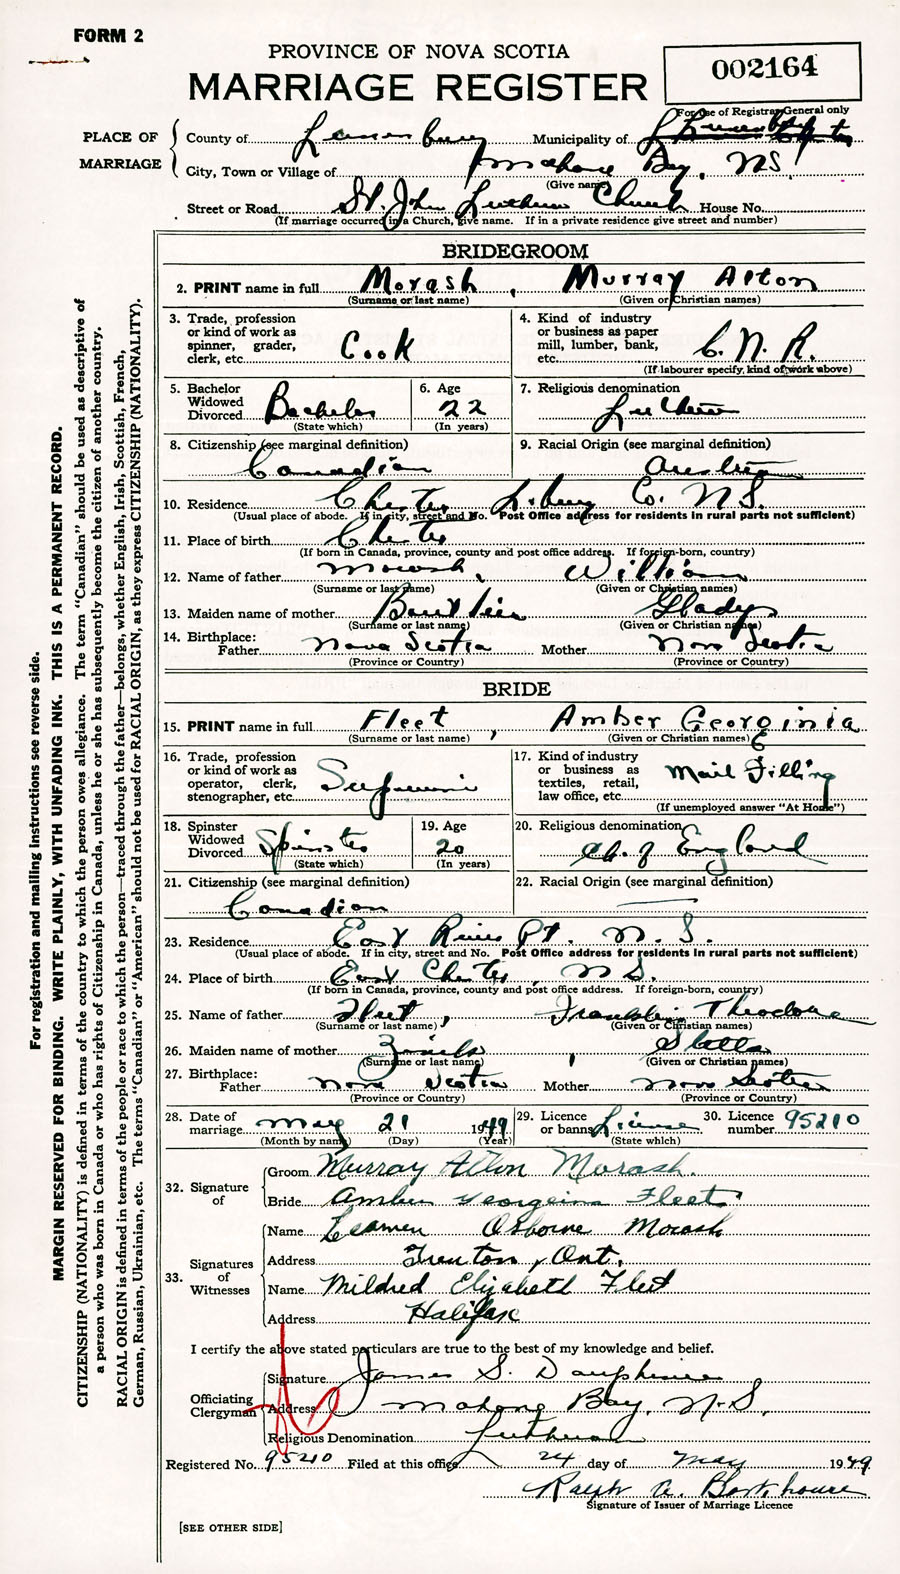 FORM 2
PROVINCE OF NOVA SCOTIA
MARRIAGE REGISTER
002164
For Use of Registrar General only
PLACE OF MARRIAGE
County of Lunenburg Municipality of
City, Town or Village of Mahone Bay, NS.
(Give name)
Street or Road St. John Lutheran Church House No.
(If marriage occurred in a Church, give name. If in a private residence give street and number)
BRIDEGROOM
2. PRINT name in full Morash, Murray Alton
(Surname or last name) (Given or Christian names)
3. Trade, profession or kind of work as spinner, grader, clerk, etc. Cook
4. Kind of industry or business as paper mill, lumber, bank, etc. C. N. R.
(If labourer specify, kind of work above)
5. Bachelor Widowed Divorced Bachelor
(State which)
6. Age 22
(In years)
7. Religious denomination Lutheran
8. Citizenship (see marginal definition) Canadian
9. Racial Origin (see marginal definition)
10. Residence Chester Co. N.S.
(Usual place of abode. If in city, street and No. Post Office address for residents in rural parts not sufficient)
11. Place of birth Chester
(If born in Canada, province, county and post office address. If foreign-born, country)
12. Name of father Morash, William
(Surname or last name) (Given or Christian names)
13. Maiden name of mother Gladys
(Surname or last name) (Given or Christian names)
14. Birthplace: Father Nova Scotia Mother Nova Scotia
(Province or Country) (Province or Country)
BRIDE
15. PRINT name in full Fleet, Amber Georginia
(Surname or last name) (Given or Christian names) E
16. Trade, profession or kind of work as operator, clerk, stenographer, etc.
17. Kind of industry or business as textiles, retail, law office, etc. Mail Filling
(If unemployed answer "At Home")
18. Spinster Widowed Divorced Spinster
(State which)
19. Age 20
(In years)
20. Religious denomination Ch. of England
21. Citizenship (see marginal definition) Canadian
22. Racial Origin (see marginal definition)
23. Residence East River Pt. N. S.
(Usual place of abode. If in city, street and No. Post Office address for residents in rural parts not sufficient)
24. Place of birth East Chester, N.S.
(If born in Canada, province, county and post office address. If foreign-born, country)
25. Name of father Fleet, Franklin Theodore
(Surname or last name) (Given or Christian names)
26. Maiden name of mother Zinck, Stella
(Surname or last name) (Given or Christian names)
27. Birthplace: Father Nova Scotia Mother Nova Scotia
(Province or Country) (Province or Country)
28. Date of marriage May 21 1949
(Month by name) (Day) (Year)
29. Licence or banns License
(State which)
30. Licence number 95210
32. Signature of
Groom Murray Alton Morash.
Bride Amber Georgeina Fleet
33. Signatures of Witnesses
Name Osborne Morash
Address Trenton, Ont.
Name Mildred Elizabeth Fleet
Address Halifax
I certify the above stated particulars are true to the best of my knowledge and belief.
Officiating Clergyman
Signature James S. Dauphinee
Address Mahone Bay, N.S.
Religious Denomination Lutheran
Registered No. 95210 Filed at this office 24 day of May 1949
Ralph A. Barkhouse
Signature of Issuer of Marriage Licence
[SEE OTHER SIDE]
For registration and mailing instructions see reverse side.
MARGIN RESERVED FOR BINDING. WRITE PLAINLY, WITH UNFADING INK. THIS IS A PERMANENT RECORD.
CITIZENSHIP (NATIONALITY) is defined in terms of the country to which the person owes allegiance. The term "Canadian" should be used as descriptive of
a person who was born in Canada or who has rights of Citizenship in Canada, unless he or she has subsequently become the citizen of another country.
RACIAL ORIGIN is defined in terms of the people or race to which the person—traced through the father—belongs, whether English, Irish, Scottish, French,
German, Russian, Ukrainian, etc. The terms "Canadian" or "American" should not be used for RACIAL ORIGIN, as they express CITIZENSHIP (NATIONALITY).